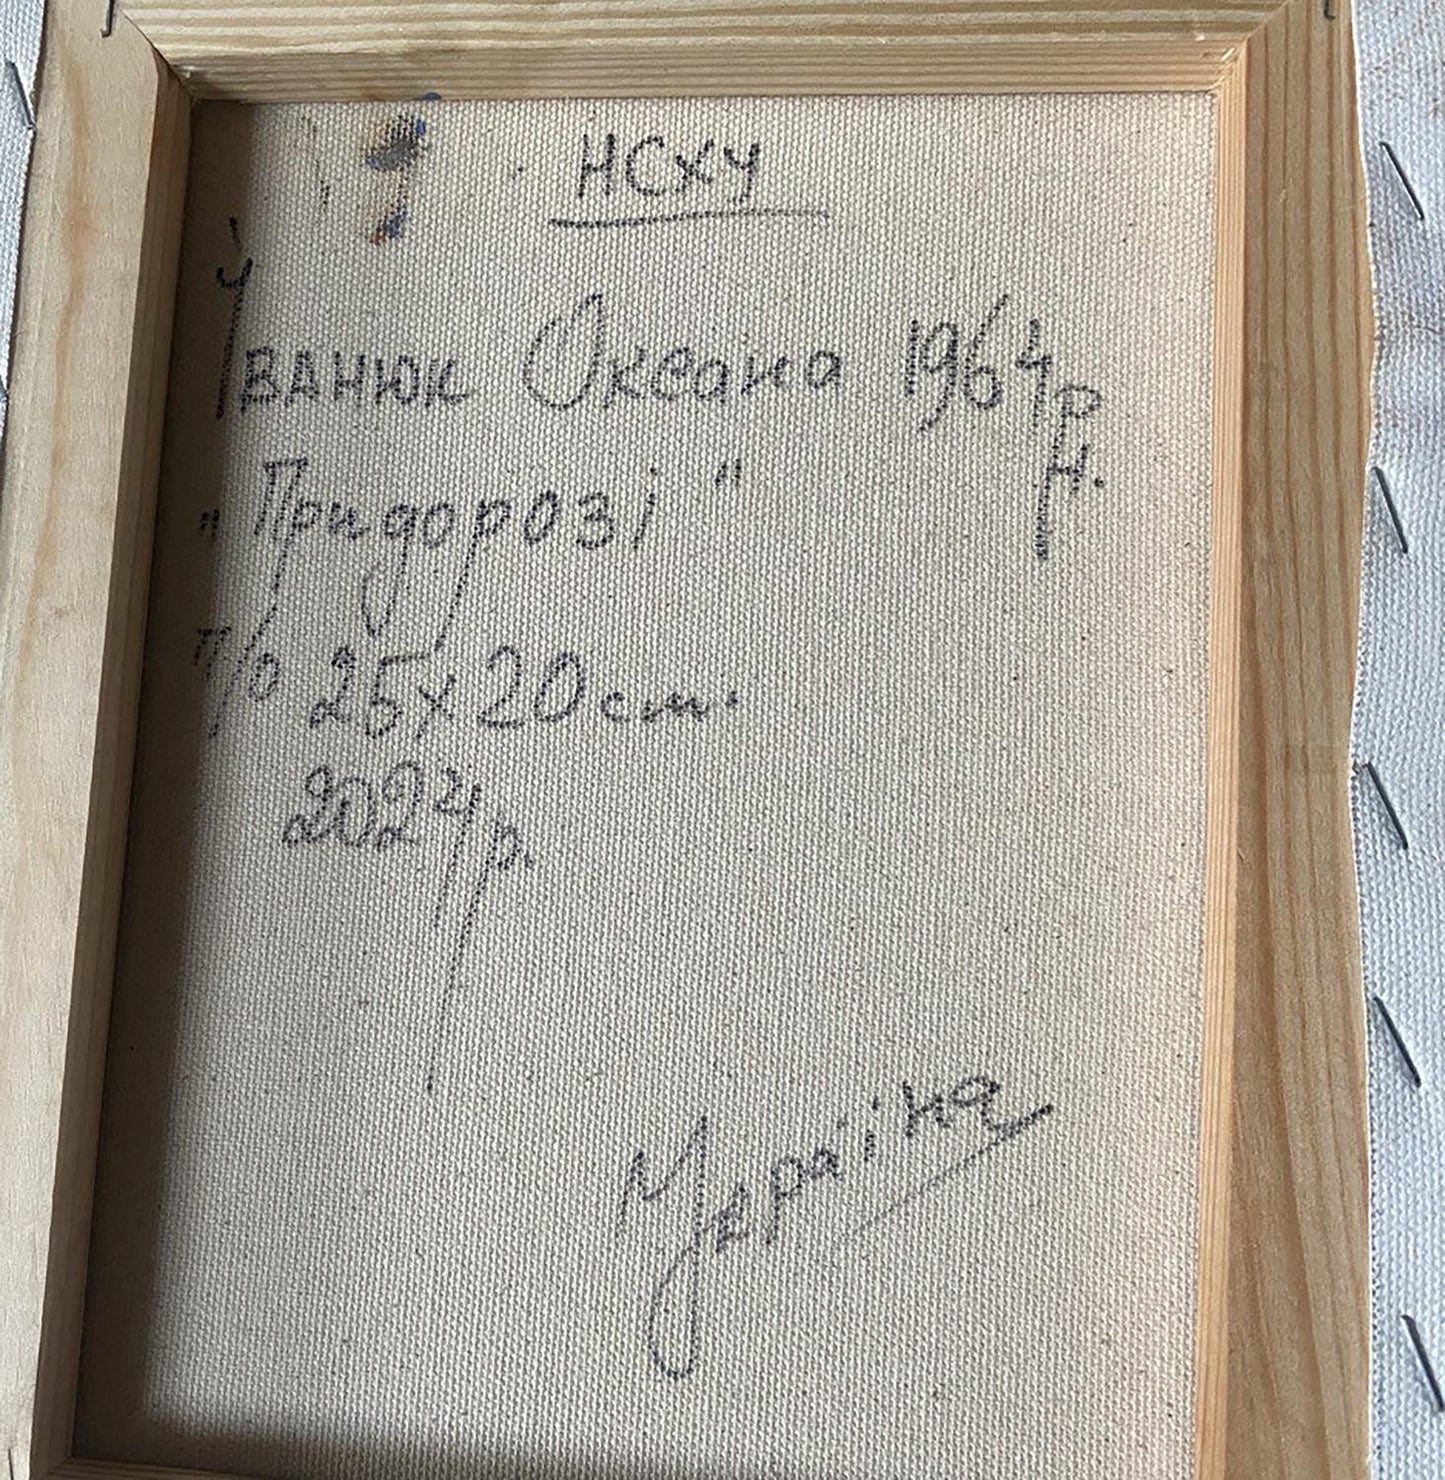 НСХУ
Іванюк Оксана 1964р
н.
„Придорозі"
п/о 25х20см.
2024р.
Україна